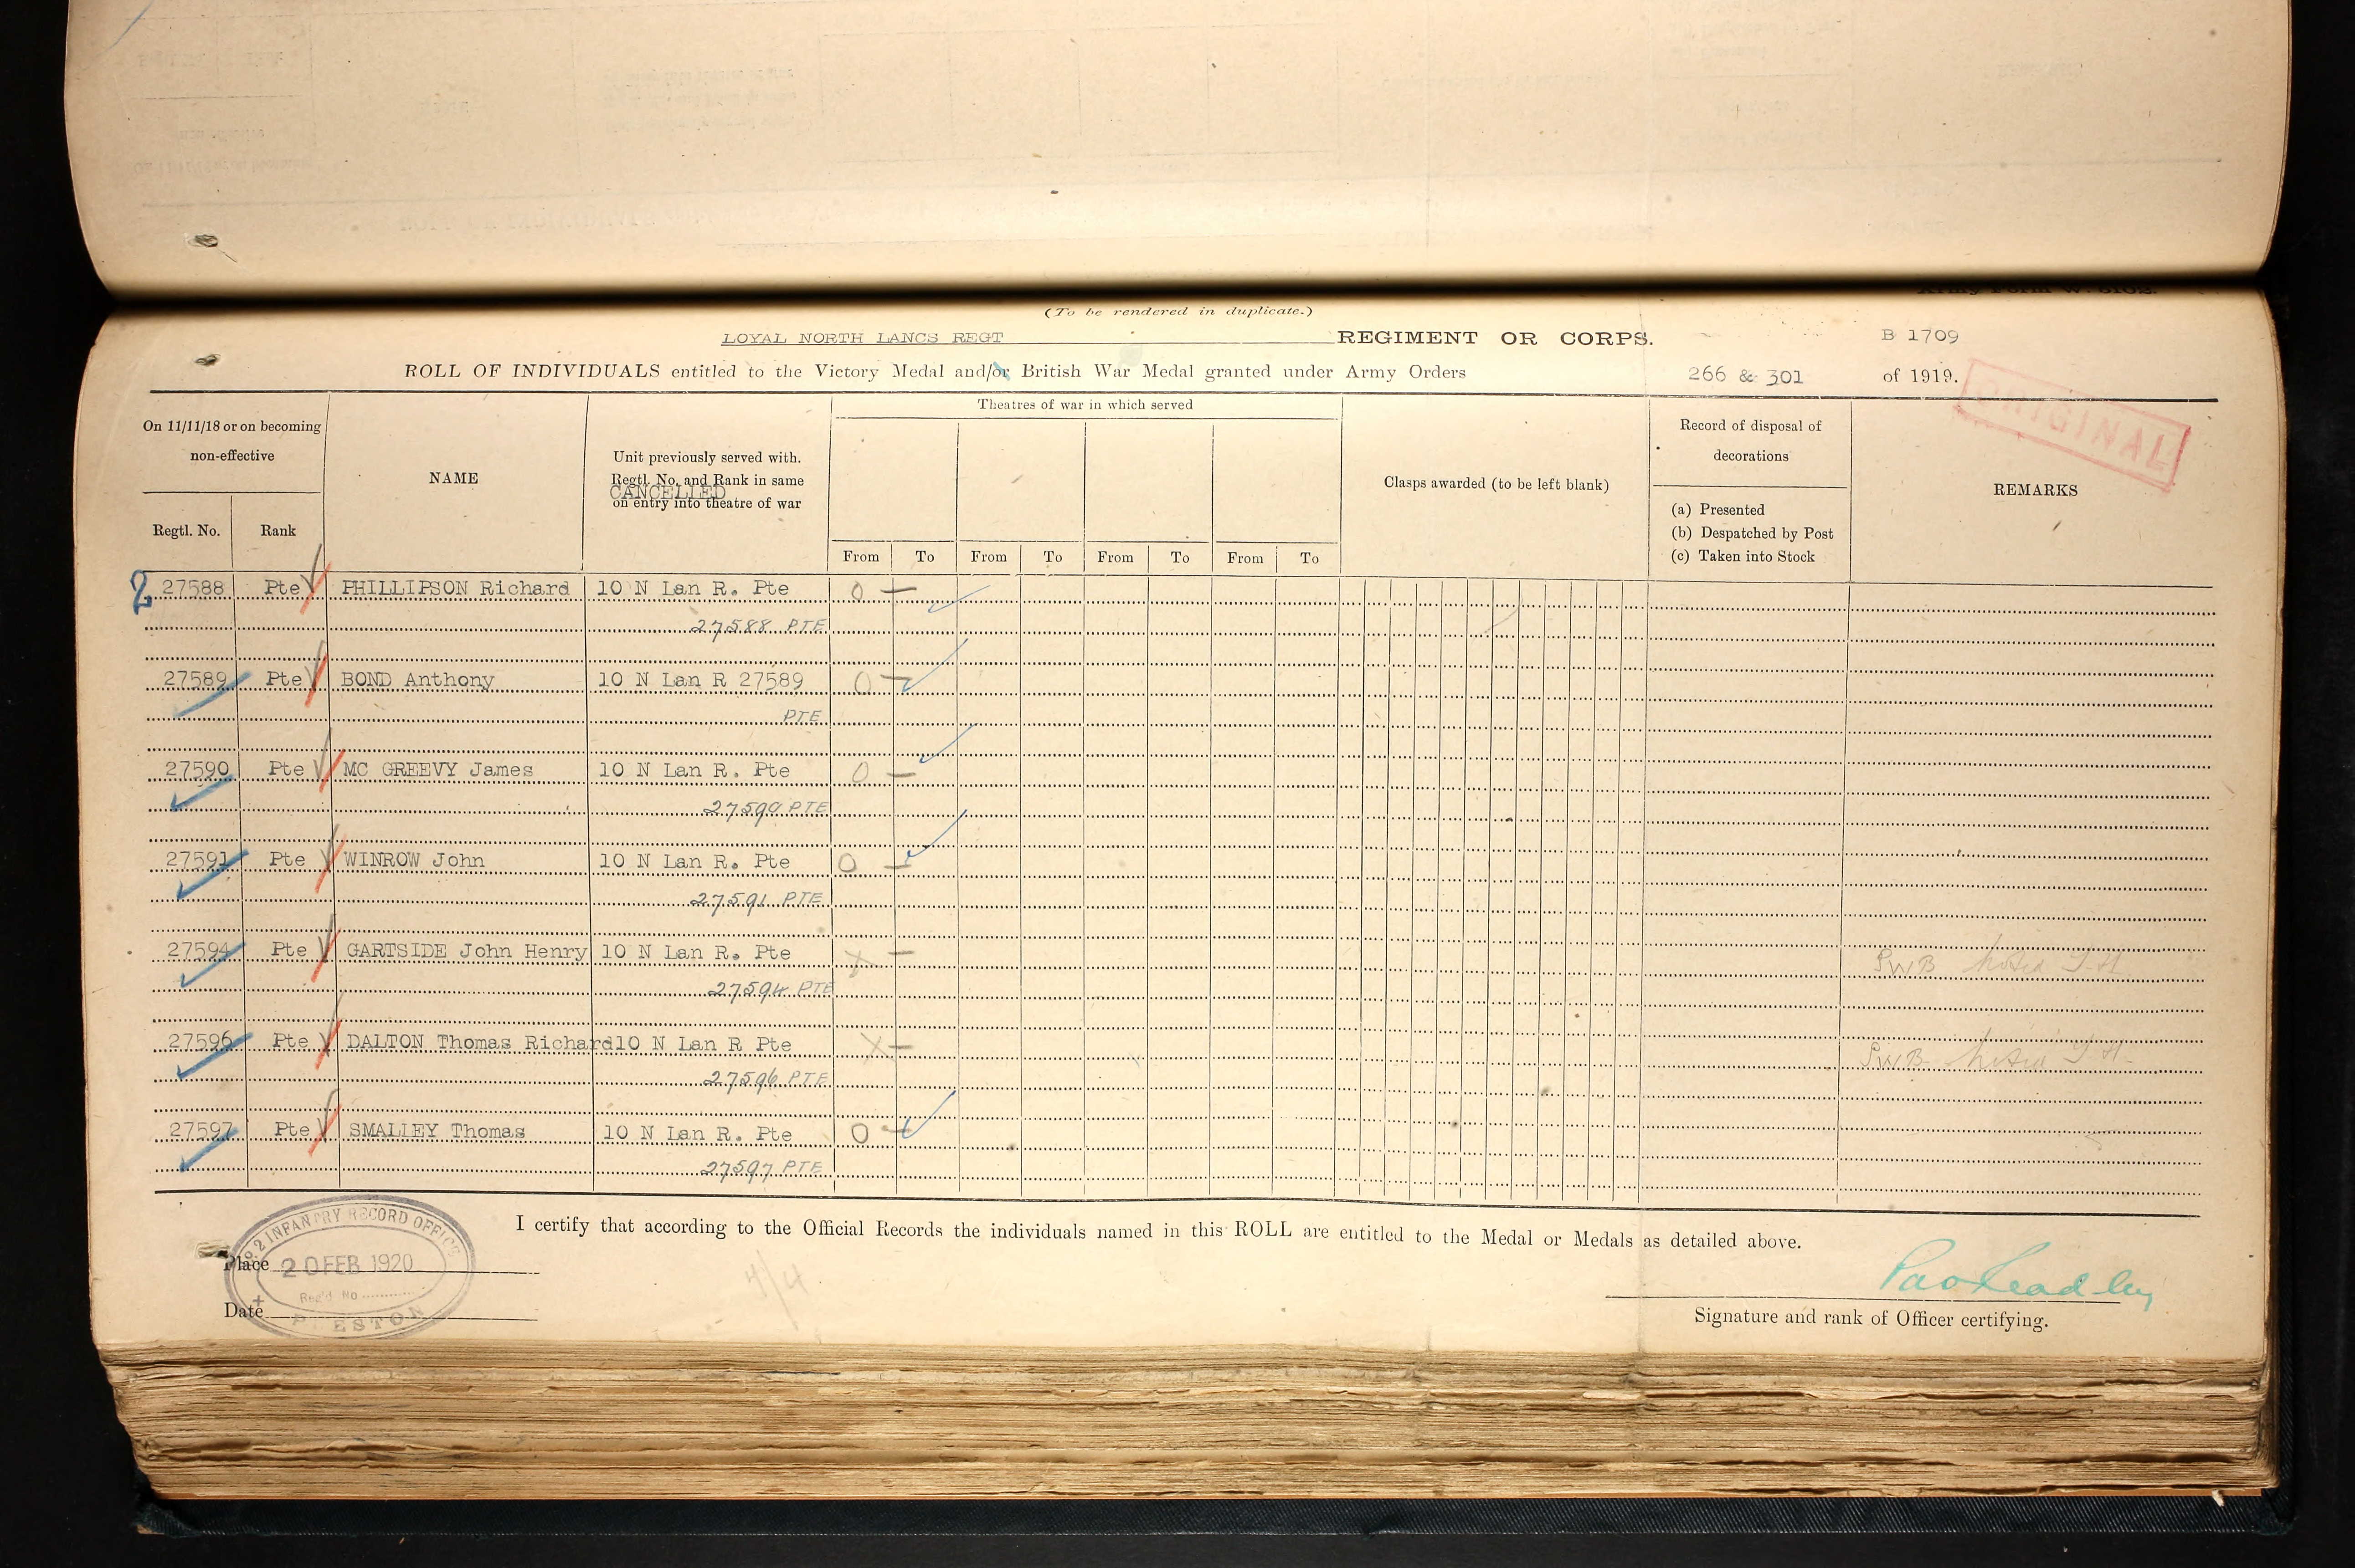 (To be rendered in duplicate.)
LOYAL NORTH LANCS REGT REGIMENT OR CORPS. B 1709
ROLL OF INDIVIDUALS entitled to the Victory Medal and/or British War Medal granted under Army Orders 266 & 301 of 1919.
ORIGINAL
On 11/11/18 or on becoming
non-effective
Regtl. No.
Rank
NAME
Unit previously served with.
Regtl. No. and Rank in same
CANCELLED
on entry into theatre of war
Theatres of war in which served
From To From To From To From To
Clasps awarded (to be left blank)
Record of disposal of
decorations
(a) Presented
(b) Despatched by Post
(c) Taken into Stock
REMARKS
2 27588 Pte PHILLIPSON Richard 10 N Lan R. Pte O —
27588 PTE
27589 Pte BOND Anthony 10 N Lan R 27589 O —
PTE
27590 Pte MC GREEVY James 10 N Lan R. Pte O —
27590 PTE
27591 Pte WINROW John 10 N Lan R. Pte O —
27591 PTE
27594 Pte GARTSIDE John Henry 10 N Lan R. Pte X — SWB Noted
27594 PTE
27596 Pte DALTON Thomas Richard 10 N Lan R Pte X — SWB Noted
27596 PTE
27597 Pte SMALLEY Thomas 10 N Lan R. Pte O —
27597 PTE
I certify that according to the Official Records the individuals named in this ROLL are entitled to the Medal or Medals as detailed above.
2 INFANTRY RECORD OFFICE
20 FEB 1920
Reg'd. No
PRESTON
Place
Date
Signature and rank of Officer certifying.